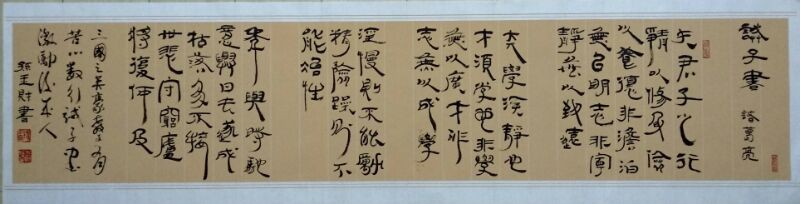 誡子書 諸葛亮
夫君子之行
靜以修身儉
以養德非澹泊
無以明志非寧
靜無以致遠
夫學須靜也
才須學也非學
無以廣才非
志無以成學
淫慢則不能勵
精險躁則不
能治性
年與時馳
意與日去遂成
枯落多不接
世悲守窮廬
將復何及
三國之英豪
苦心 誡子書
激勵後來人
王財書